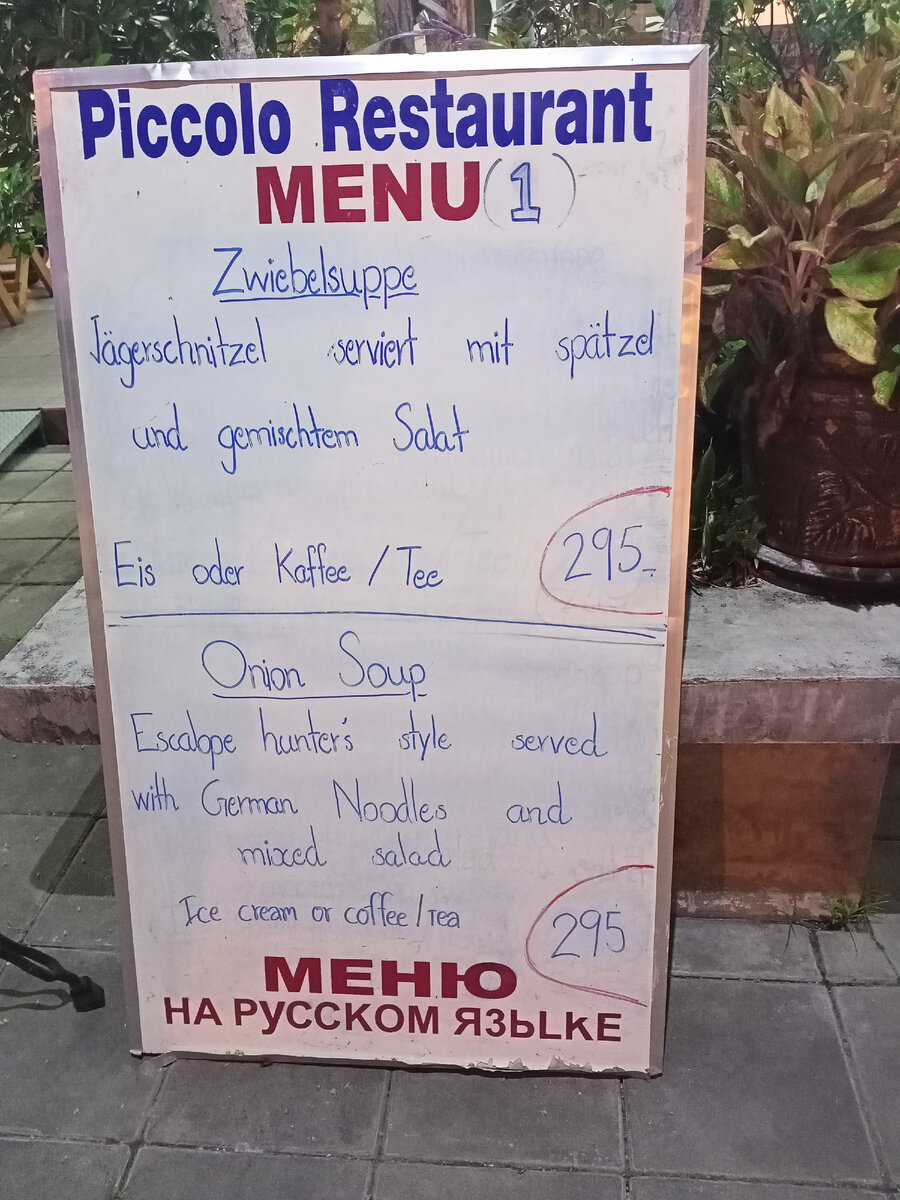 Piccolo Restaurant
MENU (1)
Zwiebelsuppe
Jägerschnitzel serviert mit spätzel
und gemischtem Salat
Eis oder Kaffee / Tee
295.-
Onion Soup
Escalope hunter's style served
with German Noodles and
mixed salad
Ice cream or coffee / Tea
295
МЕНЮ
НА РУССКОМ ЯЗЫКЕ